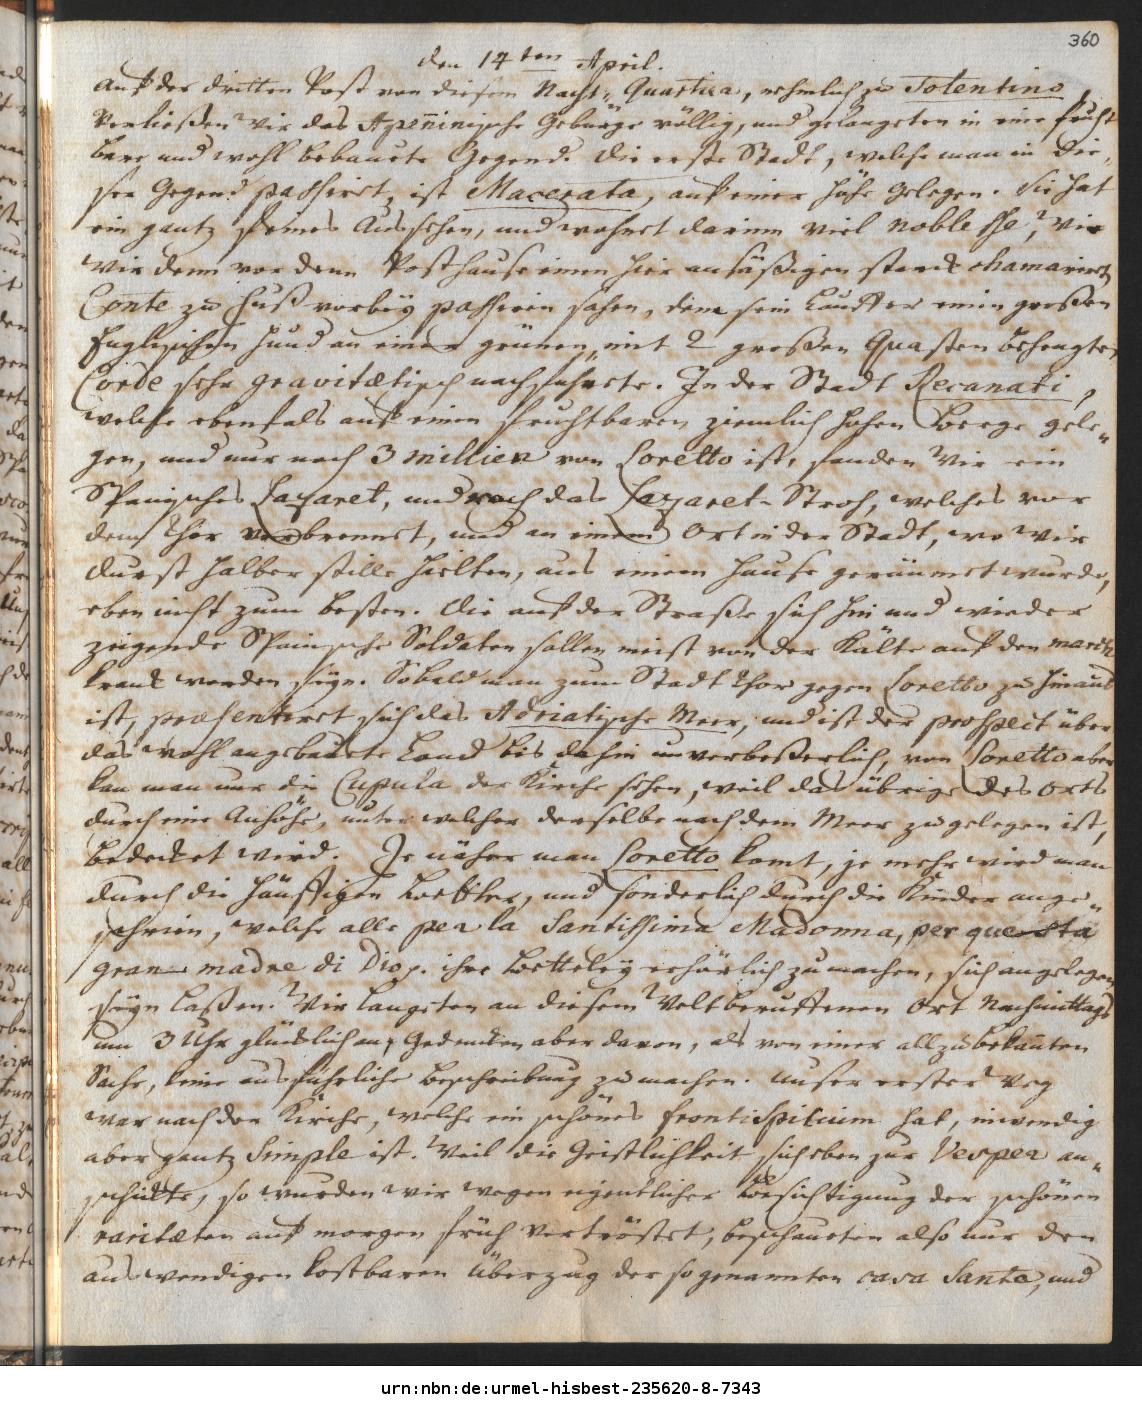 360
den 14ten April.
Auf der dritten Post von diesem Nacht-Quartier, nehmlich zu Tolentino,
verließen wir das Apenninische Gebürge völlig, und gelangten in eine frucht-
bare und wohl bebaute Gegend. Die erste Stadt, welche man in die-
ser Gegend passiret, ist Macerata, auf einer Höhe gelegen. Sie hat
ein gantz feines Aussehen, und wohnet darinn viel noblesse, wie
wir denn vor dem Posthause einen hier ansäßigen starck chamarirten
Conte zu Fuß vorbey passiren sahen, dem sein Lauffer einen großen
Englischen Hund an einer grünen, mit 2 großen Quasten behengten
Corde sehr gravitætisch nachführete. In der Stadt Recanati,
welche ebenfals auf einem fruchtbaren, ziemlich hohen Berge gele-
gen, und nur noch 3 millien von Loretto ist, fanden wir ein
Spanisches Lazaret, und roch das Lazaret-Stroh, welches vor
dem Thor verbrennet, und an einem Ort in der Stadt, wo wir
durst halber stille hielten, aus einem Hause geräumet wurde,
eben nicht zum besten. Die auf der Straße sich hin und wieder
zeigende Spanische Soldaten sollen meist von der Kälte auf den march
kranck worden seyn. Sobald man zum Stadt Thor gegen Loretto zu hinaus
ist, præsentiret sich das Adriatische Meer, und ist der prospect über
das wohl angebaute Land bis dahin unverbeßerlich, von Loretto aber
kan man nur die Cupula der Kirche sehen, weil das übrige des Orts
durch eine Anhöhe, unter welcher derselbe nach dem Meer zu gelegen ist,
bedecket wird. Je näher man Loretto komt, je mehr wird man
durch die häuffigen Bettler, und sonderlich durch die Kinder ange-
schrien, welche alle per la Santissima Madonna, per questa
gran madre di Dio p. ihre Betteley erhörlich zu machen, sich angelegen
seyn laßen. Wir langten an diesem Weltberuffenen Ort Nachmittags
um 3 Uhr glücklich an, gedencken aber davon, als von einer allzu bekanten
Sache, keine ausführliche Beschreibung zu machen. Unser erster Weg
war nach der Kirche, welche ein schönes frontispicium hat, inwendig
aber gantz Simple ist. Weil die Geistlichkeit sich eben zur Vesper an-
schickte, so wurden wir wegen eigentlicher Besichtigung der schönen
raritæten auf morgen früh vertröstet, beschaueten also nur den
auswendigen kostbaren Überzug der sogenannten casa Santa, und
urn:nbn:de:urmel-hisbest-235620-8-7343